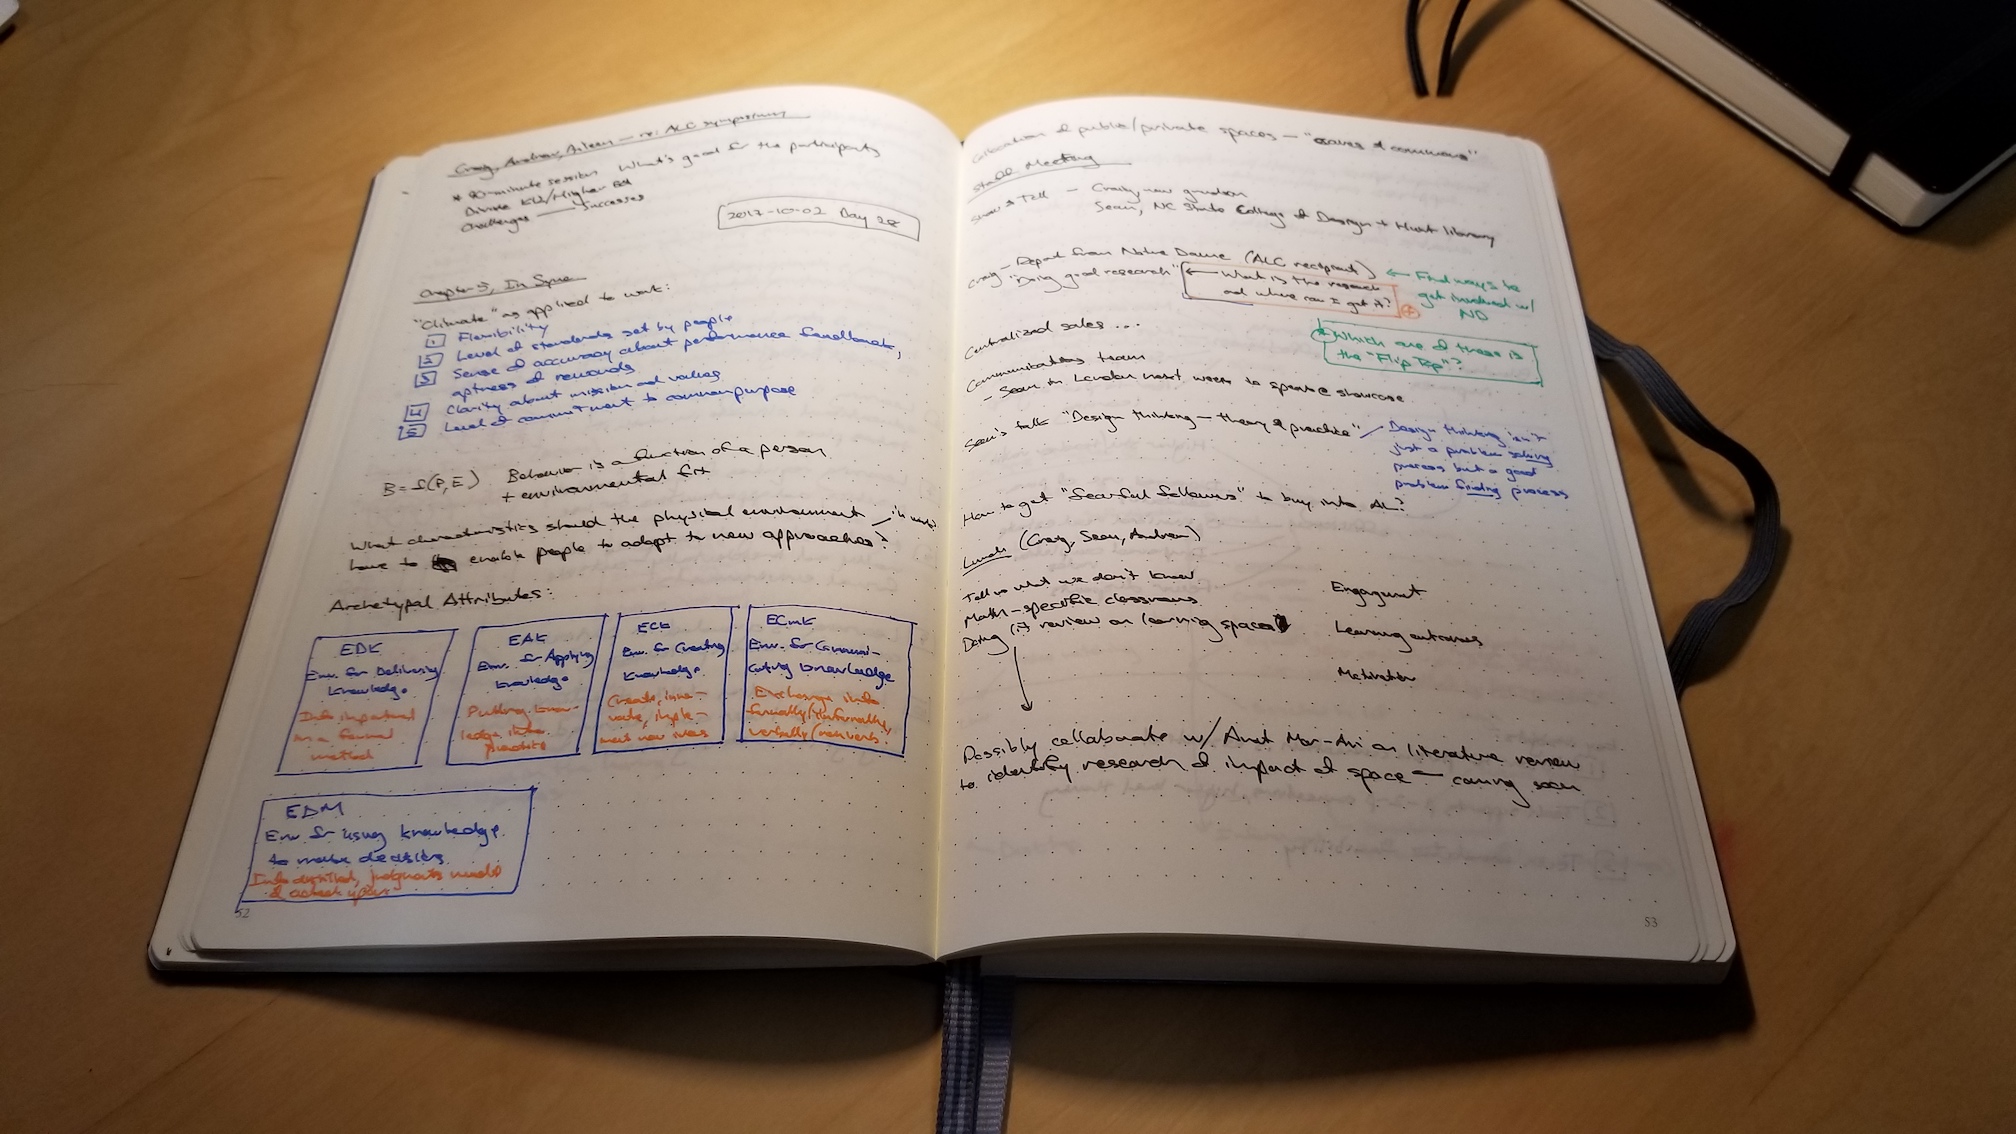 Craig, Andrew, Aileen — re: ALC symposium
* 90-minute session What's good for the participants
Divide K12/Higher Ed
Challenges — Successes
2017-10-02 Day 28
Chapter 5, In Sync
"Climate" as applied to work:
1 Flexibility
2 Level of standards set by people
3 Sense of accuracy about performance feedback,
aptness of rewards
4 Clarity about mission and values
5 Level of commitment to common purpose
B=f(P,E) Behavior is a function of a person
+ environmental fit
What characteristics should the physical environment
have to enable people to adapt to new approaches?
Archetypal Attributes:
EDK
Env. for Delivering
Knowledge
Info imparted
in a formal
method
EAK
Env. for Applying
Knowledge
Putting know-
ledge into
practice
ECK
Env. for Creating
Knowledge
Create, inno-
vate, imple-
ment new ideas
ECmK
Env. for Communi-
cating knowledge
Exchange info
formally/informally,
verbally/nonverb.
EDM
Env for using knowledge
to make decisions
Info distilled, judgments made
& acted upon
52
Allocation of public/private spaces — "caves & commons"
Staff Meeting
Show & Tell — Craig, new grandson
Sean, NC State College of Design + Hunt library
Craig — Report from Notre Dame (ALC recipient)
"Doing good research" ← What is the research
and where can I get it?
← Find ways to
get involved w/
ND
Which one of these is
the "Flip Top"?
Centralized sales ...
Communications team
- Sean in London next week to speak @ showcase
Sean's talk "Design thinking — theory & practice"
Design thinking isn't
just a problem solving
process but a good
problem finding process
How to get "fearful followers" to buy into AL?
Lunch (Craig, Sean, Andrew)
Tell us what we don't know
Math-specific classrooms
Doing lit review on learning spaces
Engagement
Learning outcomes
Motivation
Possibly collaborate w/ on literature review
to identify research of impact of space — coming soon
53